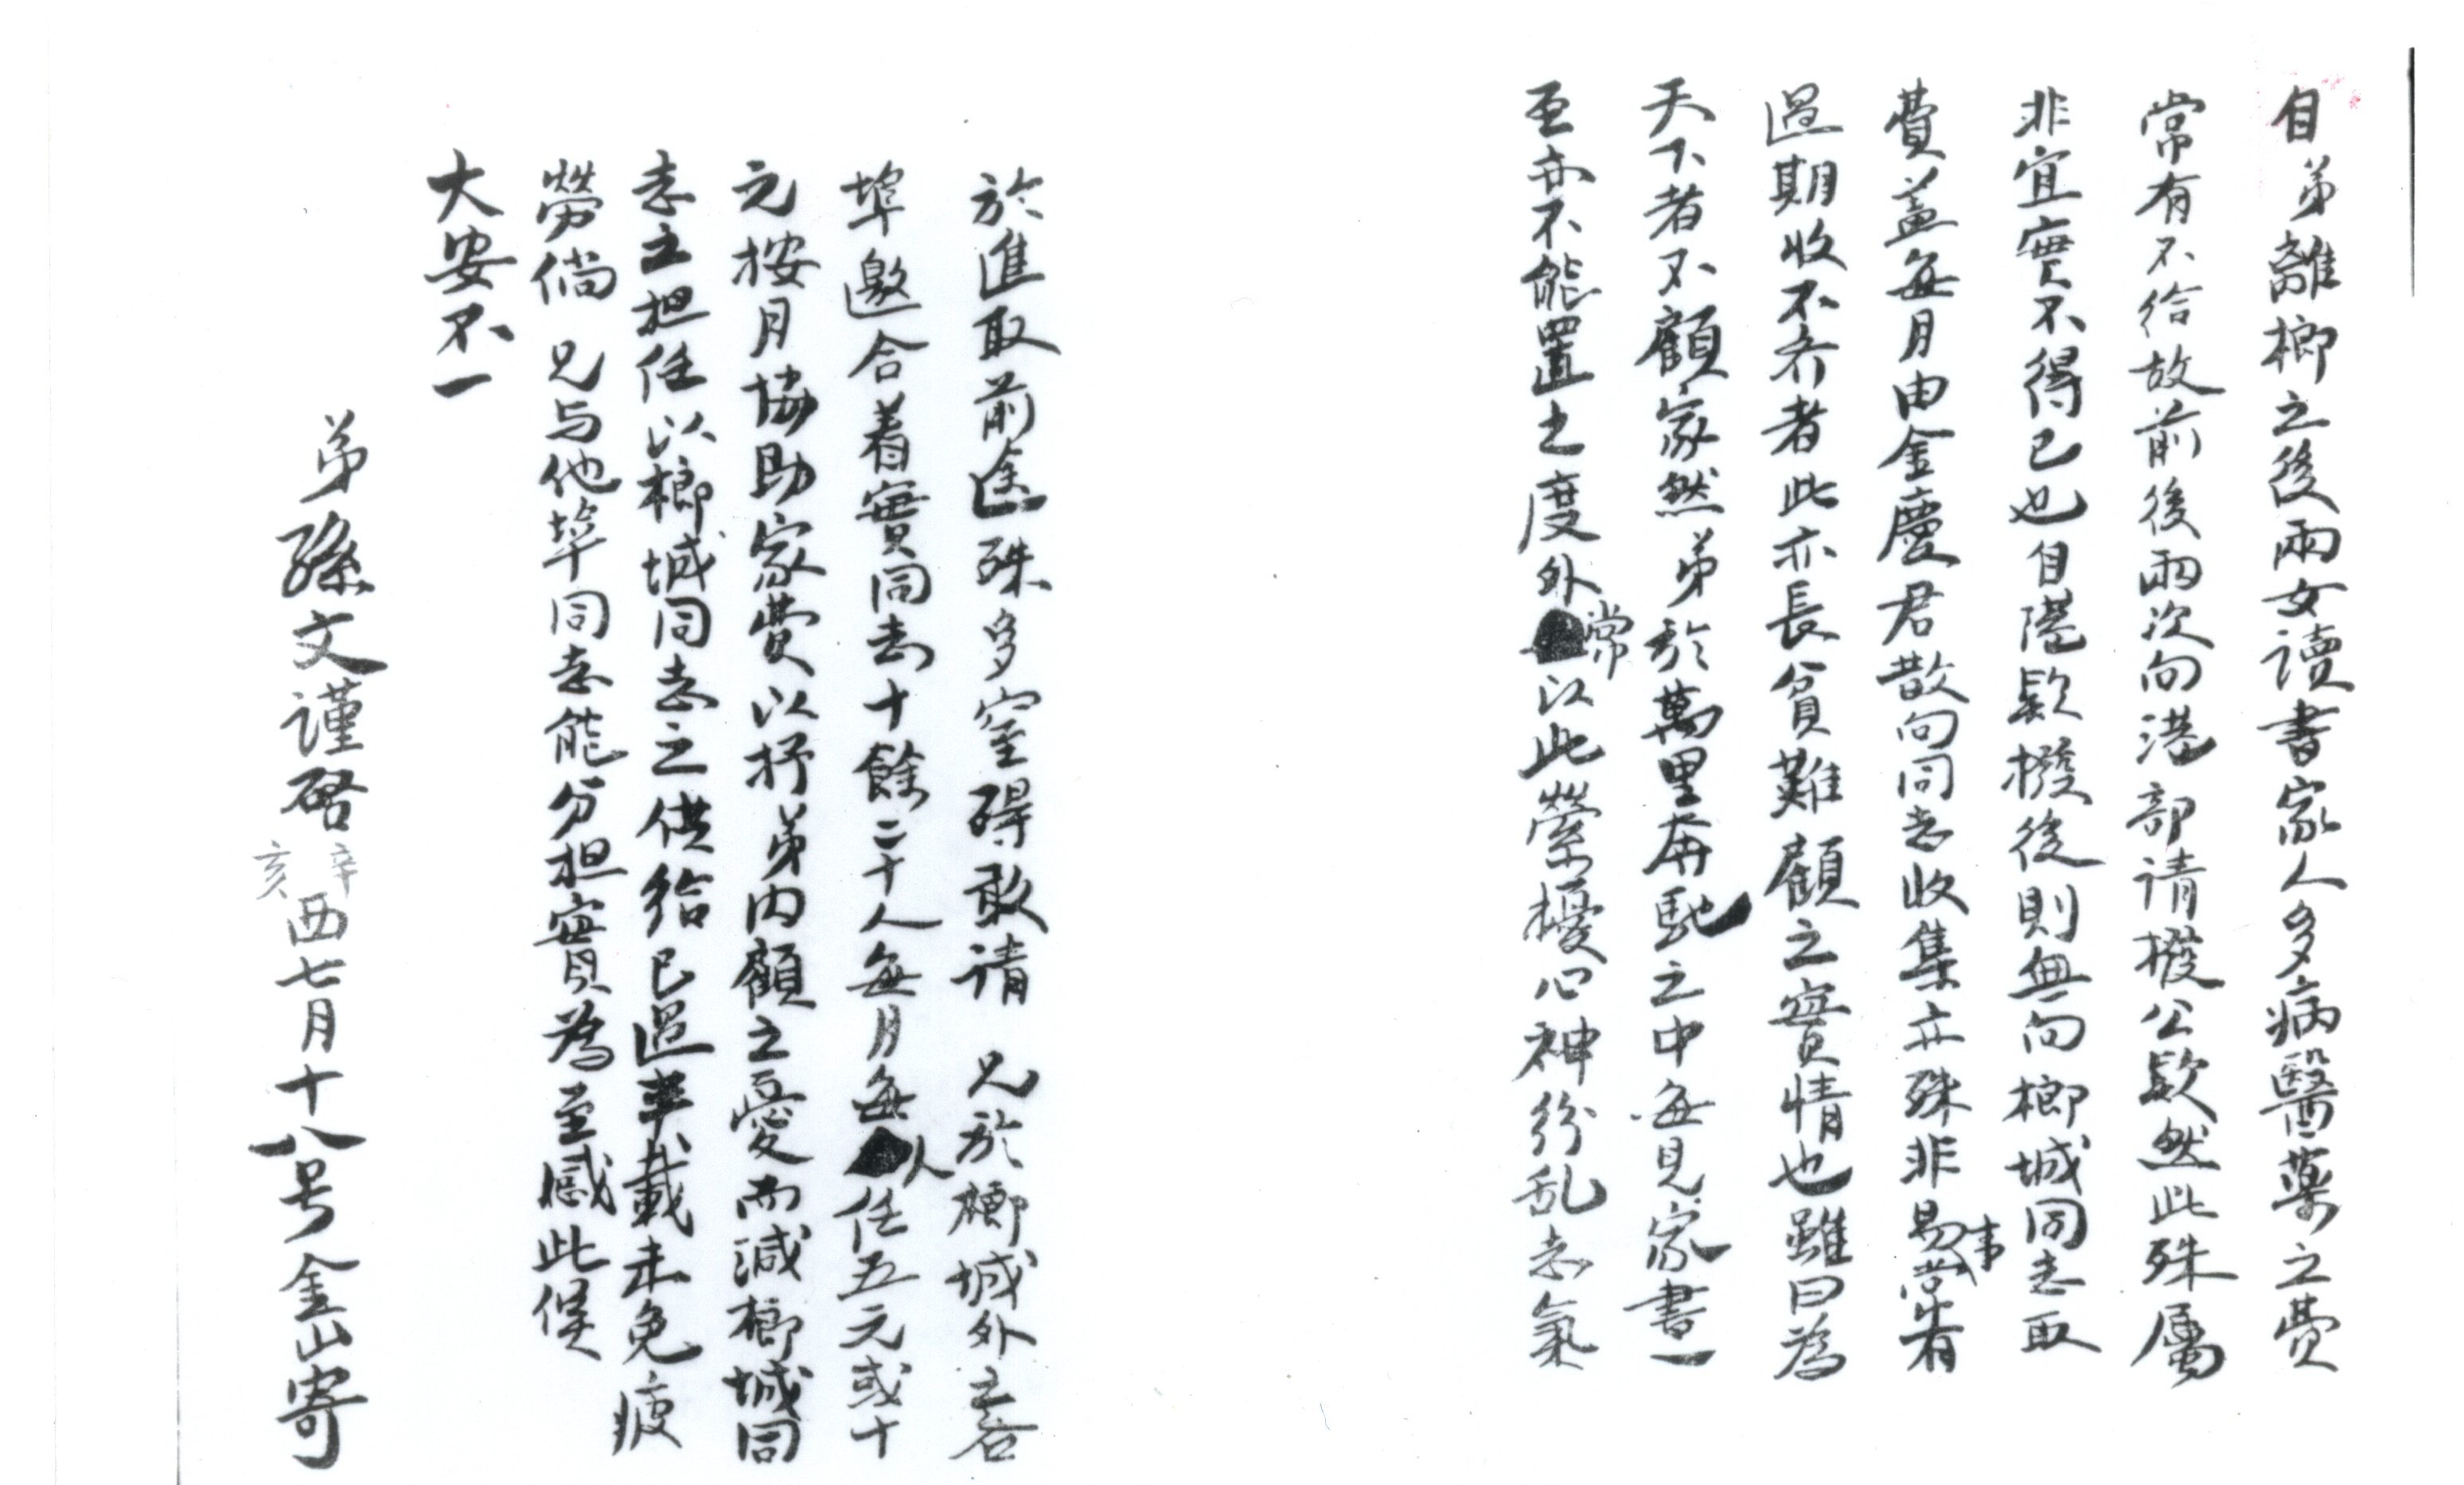 自弟離榔之後兩女讀書家人多病醫藥之費
常有不給故前後兩次向港部請撥公款然此殊屬
非宜實不得已也自港款撥後則每向榔城同志取
費蓋每月由金慶君散向同志收集亦殊非易事常有
過期收不齐者此亦長貧難顧之實情也雖曰為
天下者不顧家然弟於萬里奔馳之中每見家書一
至亦不能置之度外常以此縈擾心神紛乱志氣
於進取前途殊多窒碍敢请 兄於榔城外之各
埠邀合着實同志十餘二十人每月每人任五元或十
元按月協助家費以抒弟內顧之憂而減榔城同
志之担任以榔城同志之供給已過半載未免疲
勞倘 兄与他埠同志能分担實為至感此候
大安不一
弟孫文謹啓 辛亥西七月十八号金山寄